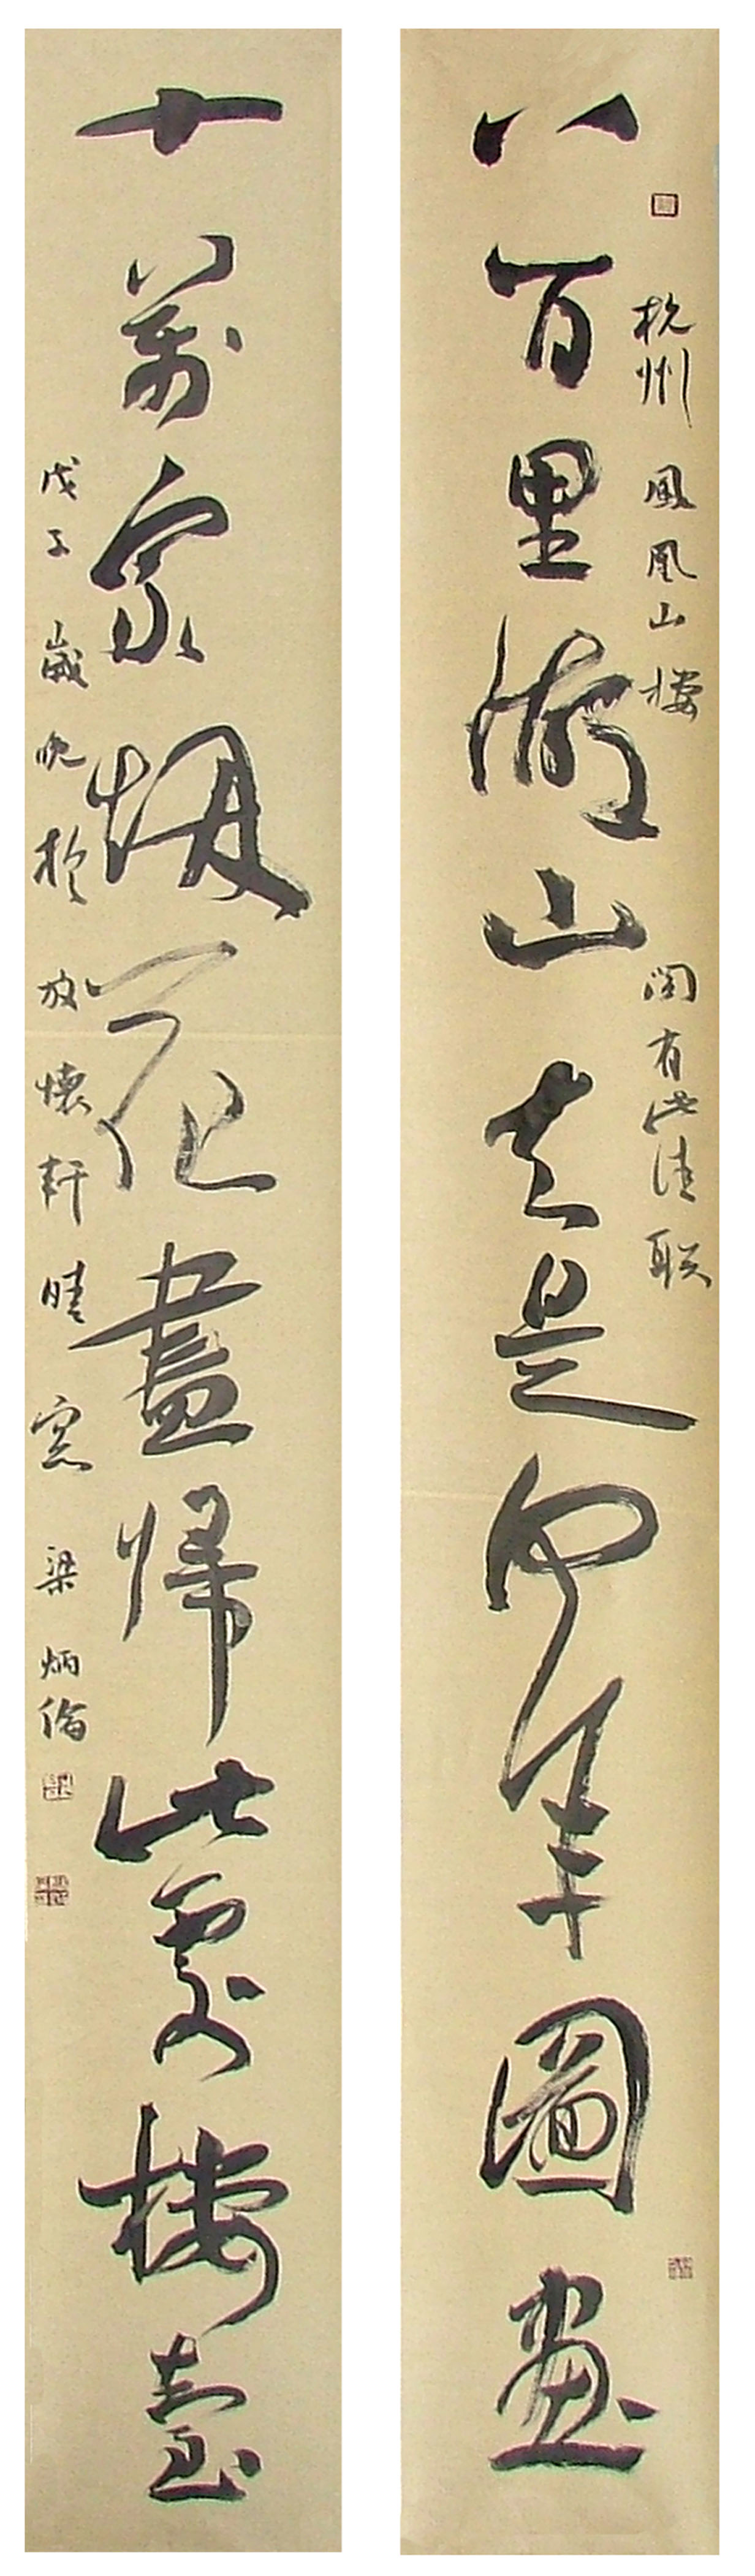 八百里湖山知是何年圖畫
杭州鳳凰山樓閣有此佳联
十萬家烟花盡歸此處樓臺
戊子歲晚於放懷軒晴窓 梁炳倫